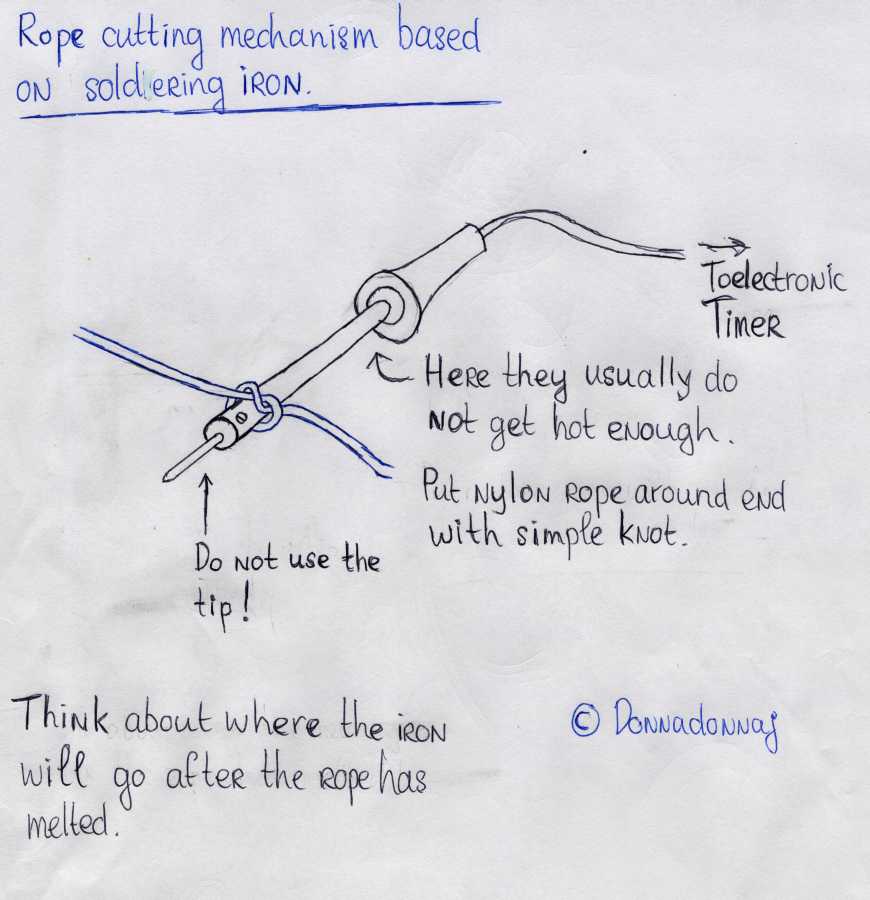 Rope cutting mechanism based
on soldiering iron.
Toelectronic
Timer
Here they usually do
not get hot enough.
Put nylon rope around end
with simple knot.
Do not use the
tip!
Think about where the iron
will go after the rope has
melted.
© Donnadonnaj